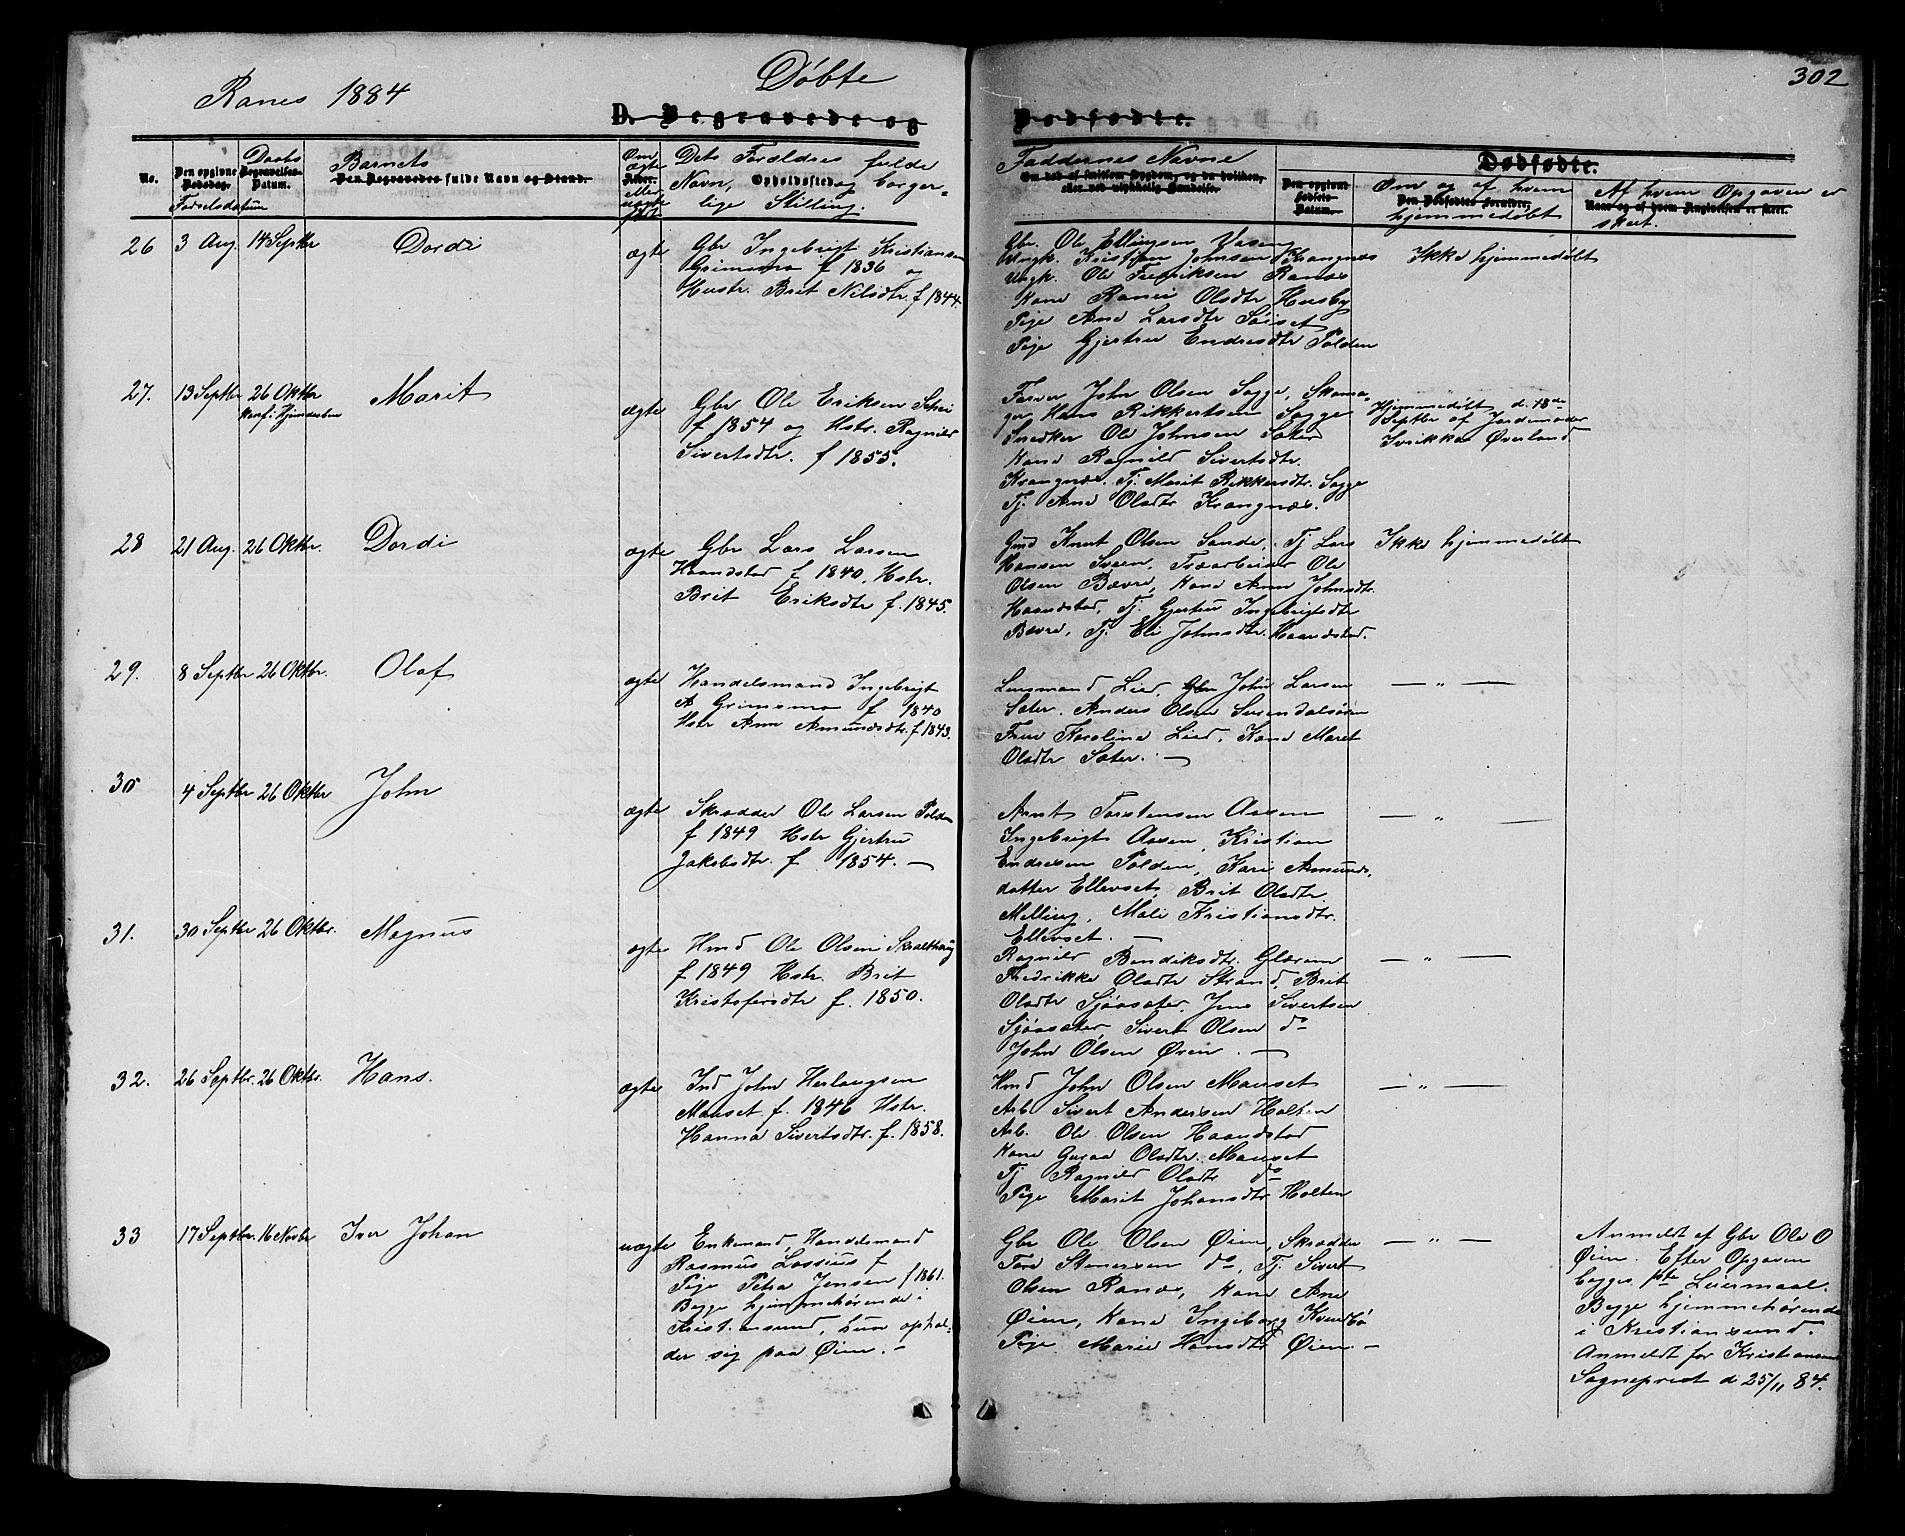 302
Ranes 1884
Døbte
D. Begravede og
Dødfødte.
No.
Den opgivne Dødsdag.
Førselsdatum
Daabs
Begravelses-Datum.
Barnets
Den Begravedes fulde Navn og Stand.
Om ægte eller uægte
Dets Forældres fulde
Navn, Opholdssted og borger-
lige Stilling.
Faddernes Navne
Om død af smitsom Sygdom, og da hvilken,
eller ved ulykkelig Hændelse.
Dødfødte.
Den opgivne Fødsels-Datum.
Om og af hvem
Den Dødfødtes Forældre.
hjemmedøbt
Af hvem Opgaven er
Naar og af hvem Angivelsen er skeet.
skeet.
26 3 Aug. 14 Septbr Dordi ægte
Gbr Ingebrigt Kristiansen
Grimsmo f 1836 og
Hustr. Brit Nilsdtr. f 1844.
Gbr. Ole Ellingsen Vasen
Ungk. Kristian Johnsen Krangnæs
Ungk. Ole Fredriksen Ranæs
Kone Olsdtr Husby
Pige Ane Larsdtr Søiset
Pige Gjertru Endresdtr Polden
Ikke hjemmedøbt
27. 13 Septbr 26 Oktbr Marit ægte
Konf. i Hjemmedaaben
Gbr Ole Eriksen
f 1854 og Hstr. Ragnild
Sivertsdtr. f 1855.
Farver John Olsen Sogge, Skoma-
ger Hans Rikkertsen Sogge
Snedker Ole Johnsen Sæter
Kone Ragnild Sivertsdtr.
Krangnæs. Tj. Marit Rikkertsdtr. Sogge
Tj. Ane Olsdtr Krangnæs.
Hjemmedøbt d. 18de
Septbr af Jordemoder
Overland
28 21 Aug. 26 Oktbr. Dordi ægte
Gbr Lars Larsen
Haandstad f 1840, Hstr.
Brit Eriksdtr f. 1845.
Gmd Knut Olsen Sande, Tj Lars
Hansen Sveen, Træarbeider Ole
Olsen Bævre, Kone Ann Johnsdtr.
Haandstad, Tj. Gjertru Ingebrigtsdtr
Bævre, Tj. Eli Johnsdtr. Haandstad.
Ikke hjemmedøbt
29. 8 Septbr 26 Oktbr. Olaf ægte
Handelsmand Ingebrigt
A Grimsmo f 1840
Hstr Ann Amundsdtr. f 1843.
Lensmand Lied, Gbr John Larsen
Sæter. Anders Olsen Surendalsøren
Frue Karolina Lied, Kone Maret
Olsdtr Sæter. —
— " —
30 4 Septbr 26 Oktbr John ægte
Skrædder Ole Larsen Polden
f 1849 Hstr Gjertru
Jakobsdtr. f 1854. —
Arnt Torstensen Aasen
Ingebrigt Aasen, Kristian
Endresen Polden, Kari Amunds-
datter Ellevset, Brit Olsdtr
Melling, Mali Kristiansdtr.
Ellevset. —
— " —
31. 30 Septbr 26 Oktbr. Magnus ægte
Hmd Ole Olsen Skralthaug
f 1849 Hstr. Brit
Kristofersdtr f. 1850.
Ragnild Bendiksdtr. Glærem
Fredrikke Olsdtr Strand, Brit
Olsdtr Sjøsæter, Jens Sivertsen
Sjøasæter, Sivert Olsen do
John Olsen Øien. —
— " —
32. 26 Septbr. 26 Oktbr. Hans. ægte
Ind John Herlaugsen
Mauset f. 1846 Hstr.
Hanna Sivertsdtr. f. 1858.
Hmd John Olsen Mauset
Arb. Sivert Andersen Holten
Arb. Ole Olsen Haandstad
Kone Guraa Olsdtr. Mauset
Tj Ragnild Olsdtr do
Pige Marit Johansdtr Holten
— " —
33 17 Septbr. 16 Novbr Iver Johan uægte
Enkemand, Handelsmand
Rasmus Lossius f
Pige Petra Jensen f 1861.
Begge hjemmehørende i
Kristiansund, hun ophol-
der sig paa Øien. —
Gbr Ole Olsen Øien, Skrædder
Tore Stenersen do, Tj. Sivert
Olsen Ranæs, Kone Ane
Øien, Kone Ingeborg Kvendbø
Pige Marie Hansdtr Øien. —
— " —
Anmeldt af Gbr Ole O
Øien. Efter Opgaven
begges 1ste Leiermaal.
Begge hjemmehørende
i Kristiansund.
Anmeldt for Kristiansund
Sogneprest d 25/11 84.